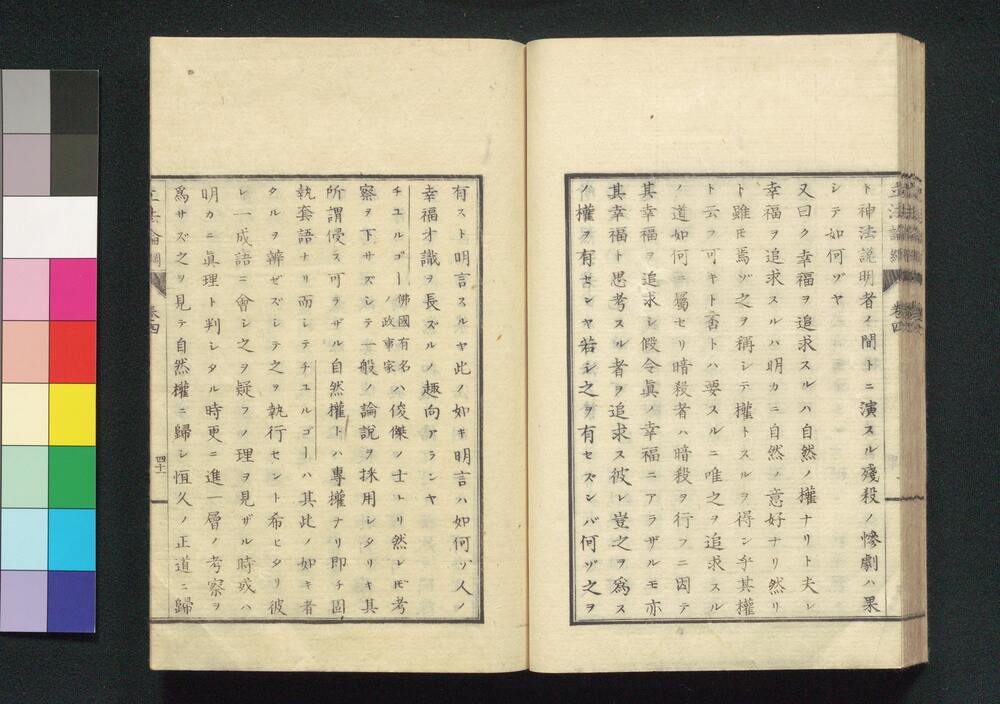 ト神法説明者ノ間トニ演スル殘殺ノ慘劇ハ果
シテ如何ゾヤ
又曰ク幸福ヲ追求スルハ自然ノ權ナリト夫レ
幸福ヲ追求スルハ明カニ自然ノ意好ナリ然リ
ト雖モ焉ゾ之ヲ稱シテ權トスルヲ得ン乎其權
ト云フ可キト否トハ要スルニ唯之ヲ追求スル
ノ道如何ニ屬セリ暗殺者ハ暗殺ヲ行フニ因テ
其幸福ヲ追求シ假令眞ノ幸福ニアラザルモ亦
其幸福ト思考スル者ヲ追求ス彼レ豈之ヲ爲ス
ノ權ヲ有センヤ若シ之ヲ有セズンバ何ゾ之ヲ
立法論綱
卷四
有スト明言スルヤ此ノ如キ明言ハ如何ゾ人ノ
幸福才識ヲ長ズルノ趣向アランヤ
チユルゴー佛國有名ノ政事家ハ俊傑ノ士トリ然レモ考
察ヲ下サズシテ一般ノ論説ヲ採用シタリキ其
所謂侵ス可ラザル自然權トハ專權ナリ即チ固
執套語ナリ而シテチユルゴーハ其此ノ如キ者
タルヲ辨ゼズシテ之ヲ執行セント希ヒタリ彼
レ一成語ニ會シ之ヲ疑フノ理ヲ見ザル時或ハ
明カニ眞理ト判シタル時更ニ進一層ノ考察ヲ
爲サズ之ヲ見テ自然權ニ歸シ恒久ノ正道ニ歸
立法論綱
卷四
四十一